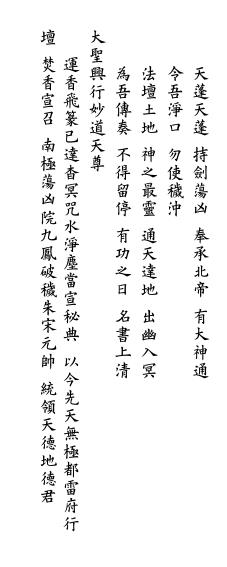 天蓬天蓬 持劍蕩凶 奉承北帝 有大神通
令吾淨口 勿使穢沖
法壇土地 神之最靈 通天達地 出幽入冥
為吾傳奏 不得留停 有功之日 名書上清
大聖興行妙道天尊
運香飛篆已達杳冥咒水淨塵當宣秘典 以今先天無極都雷府行
壇 焚香宣召 南極蕩凶院九鳳破穢朱宋元帥 統領天德地德君